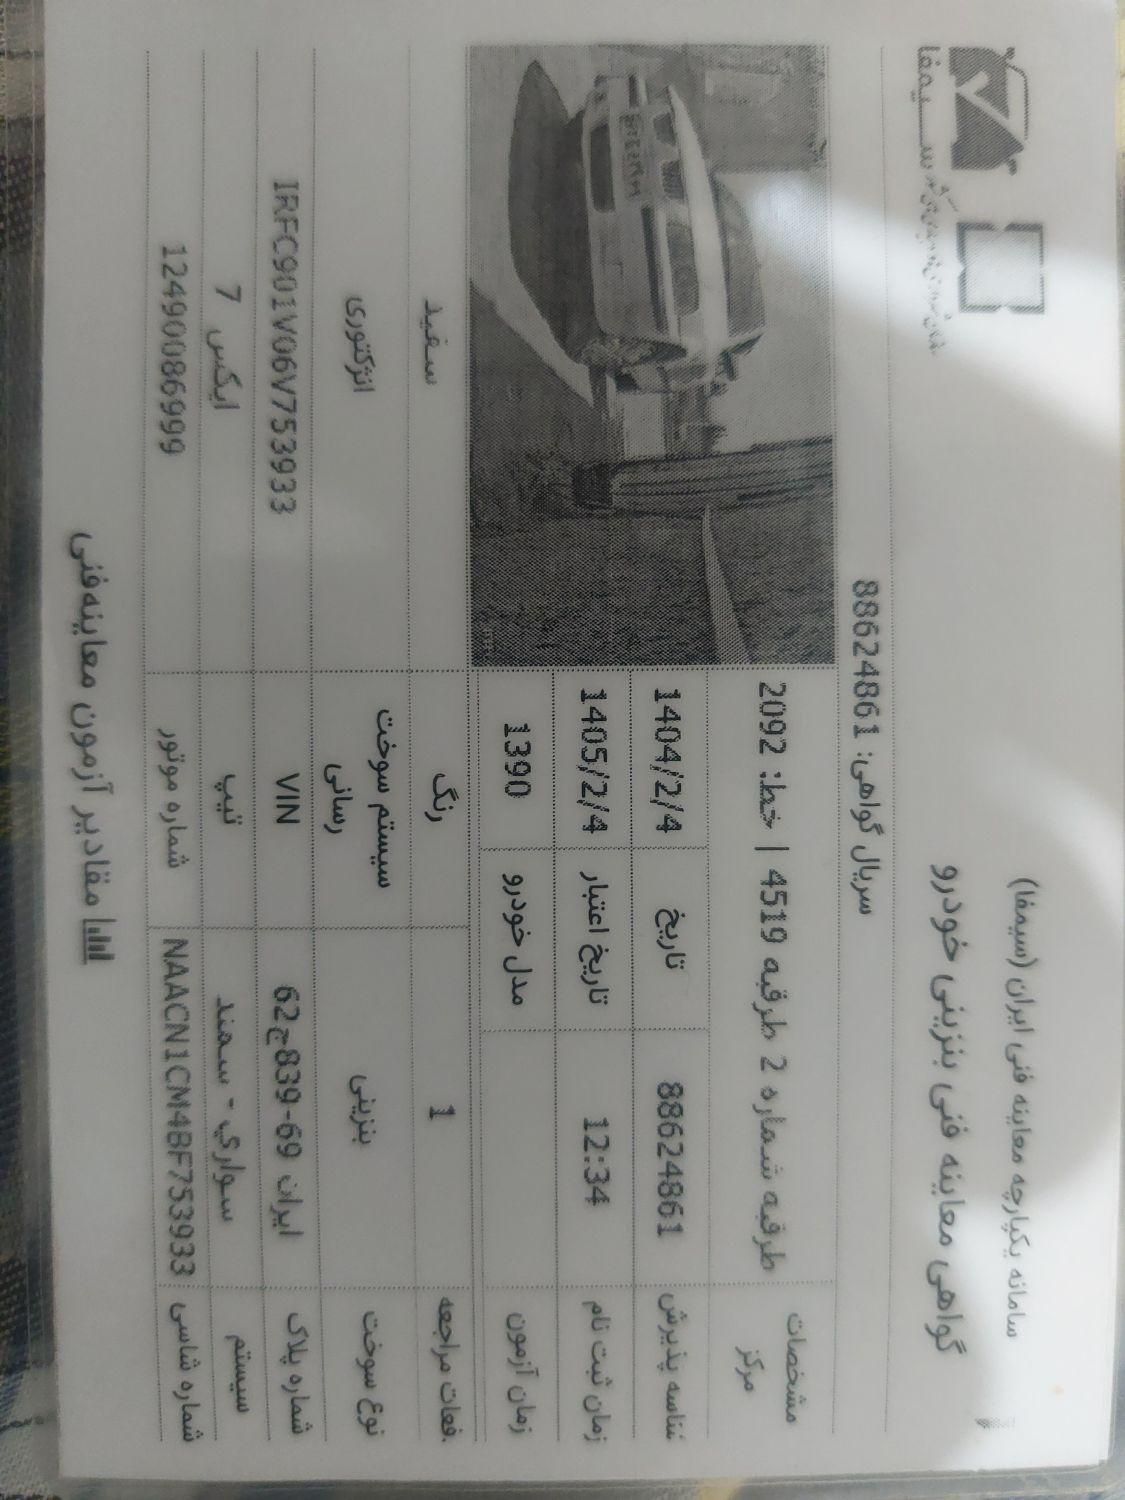 سامانه یکپارچه معاینه فنی ایران (سیمفا)
گواهی معاینه فنی بنزینی خودرو
سیمفا
سریال گواهی: 88624861
مشخصات مرکز
طرقبه شماره 2 طرقبه 4519 | خط: 2092
شناسه پذیرش 88624861 تاریخ 1404/2/4
زمان ثبت نام 12:34 تاریخ اعتبار 1405/2/4
زمان آزمون مدل خودرو 1390
دفعات مراجعه 1 رنگ سفید
نوع سوخت بنزینی سیستم سوخت رسانی انژکتوری
شماره پلاک ایران 69-839ج62 VIN IRFC901V06V753933
سیستم سواري - سمند تیپ ایکس 7
شماره شاسی NAACN1CM4BF753933 شماره موتور 12490086999
مقادیر آزمون معاینه فنی